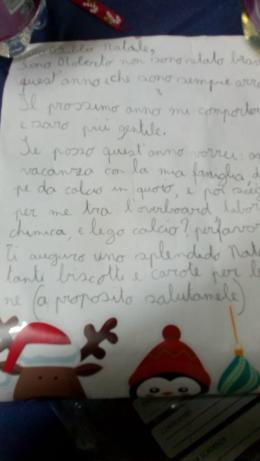 Babbo Natale,
sono Roberto non sono stato brav
quest'anno e che sono sempre arra
Il prossimo anno mi comporter
e sarò più gentile.
Se posso quest'anno vorrei: an
vacanza con la mia famiglia, d
pe da calcio in quoto, e poi sceg
per me tra l'overboard labor
chimica, e lego calcio? perfavor
Ti auguro uno splendido Nata
tanti biscotti e carote per le
ne (a proposito salutamele)